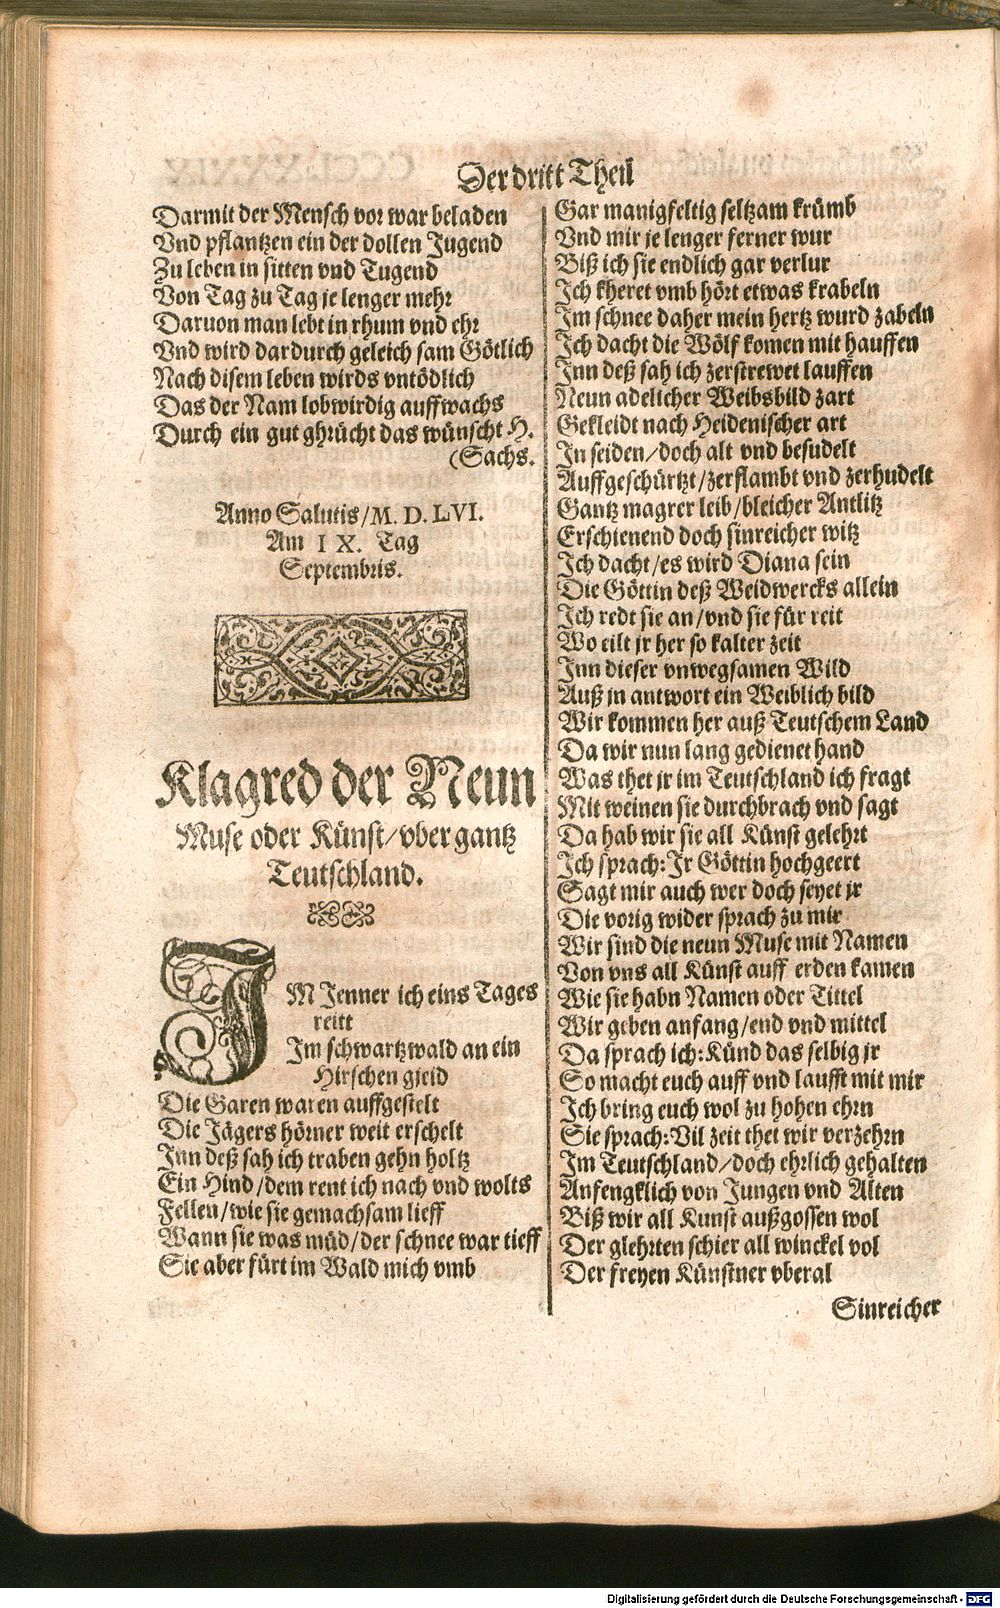 Der dritt Theil
Darmit der Mensch vor war beladen
Vnd pflantzen ein der dollen Jugend
Zu leben in sitten vnd Tugend
Von Tag zu Tag je lenger mehr
Daruon man lebt in rhum vnd ehr
Vnd wird dardurch geleich sam Götlich
Nach disem leben wirds vntödlich
Das der Nam lobwirdig auffwachs
Durch ein gut ghrücht das wünscht H.
(Sachs.
Anno Salutis/M. D. LVI.
Am IX. Tag
Septembris.
Klagred der Neun
Muse oder Künst/vber gantz
Teutschland.
IM Jenner ich eins Tages
reitt
Im schwartzwald an ein
Hirschen gjeid
Die Garen waren auffgestelt
Die Jägers hörner weit erschelt
Inn deß sah ich traben gehn holtz
Ein Hind/dem rent ich nach vnd wolts
Fellen/wie sie gemachsam lieff
Wann sie was müd/der schnee war tieff
Sie aber fürt im Wald mich vmb
Gar manigfeltig seltzam krümb
Vnd mir je lenger ferner wur
Biß ich sie endlich gar verlur
Ich kheret vmb hört etwas krabeln
Im schnee daher mein hertz wurd zabeln
Ich dacht die Wölf komen mit hauffen
Inn deß sah ich zerstrewet lauffen
Neun adelicher Weibsbild zart
Gekleidt nach Heidenischer art
In seiden/doch alt vnd besudelt
Auffgeschürtzt/zerflambt vnd zerhudelt
Gantz magrer leib/bleicher Antlitz
Erschienend doch sinreicher witz
Ich dacht/es wird Diana sein
Die Göttin deß Weidwercks allein
Ich redt sie an/vnd sie für reit
Wo eilt jr her so kalter zeit
Inn dieser vnwegsamen Wild
Auß jn antwort ein Weiblich bild
Wir kommen her auß Teutschem Land
Da wir nun lang gedienet hand
Was thet jr im Teutschland ich fragt
Mit weinen sie durchbrach vnd sagt
Da hab wir sie all Künst gelehrt
Ich sprach: Jr Göttin hochgeert
Sagt mir auch wer doch seyet jr
Die vorig wider sprach zu mir
Wir sind die neun Muse mit Namen
Von vns all Künst auff erden kamen
Wie sie habn Namen oder Tittel
Wir geben anfang/end vnd mittel
Da sprach ich: Künd das selbig jr
So macht euch auff vnd laufft mit mir
Ich bring euch wol zu hohen ehrn
Sie sprach: Vil zeit thet wir verzehrn
Im Teutschland/doch ehrlich gehalten
Anfengklich von Jungen vnd Alten
Biß wir all Kunst außgossen wol
Der glehrten schier all winckel vol
Der freyen Künstner vberal
Sinreicher
Digitalisierung gefördert durch die Deutsche Forschungsgemeinschaft - DFG